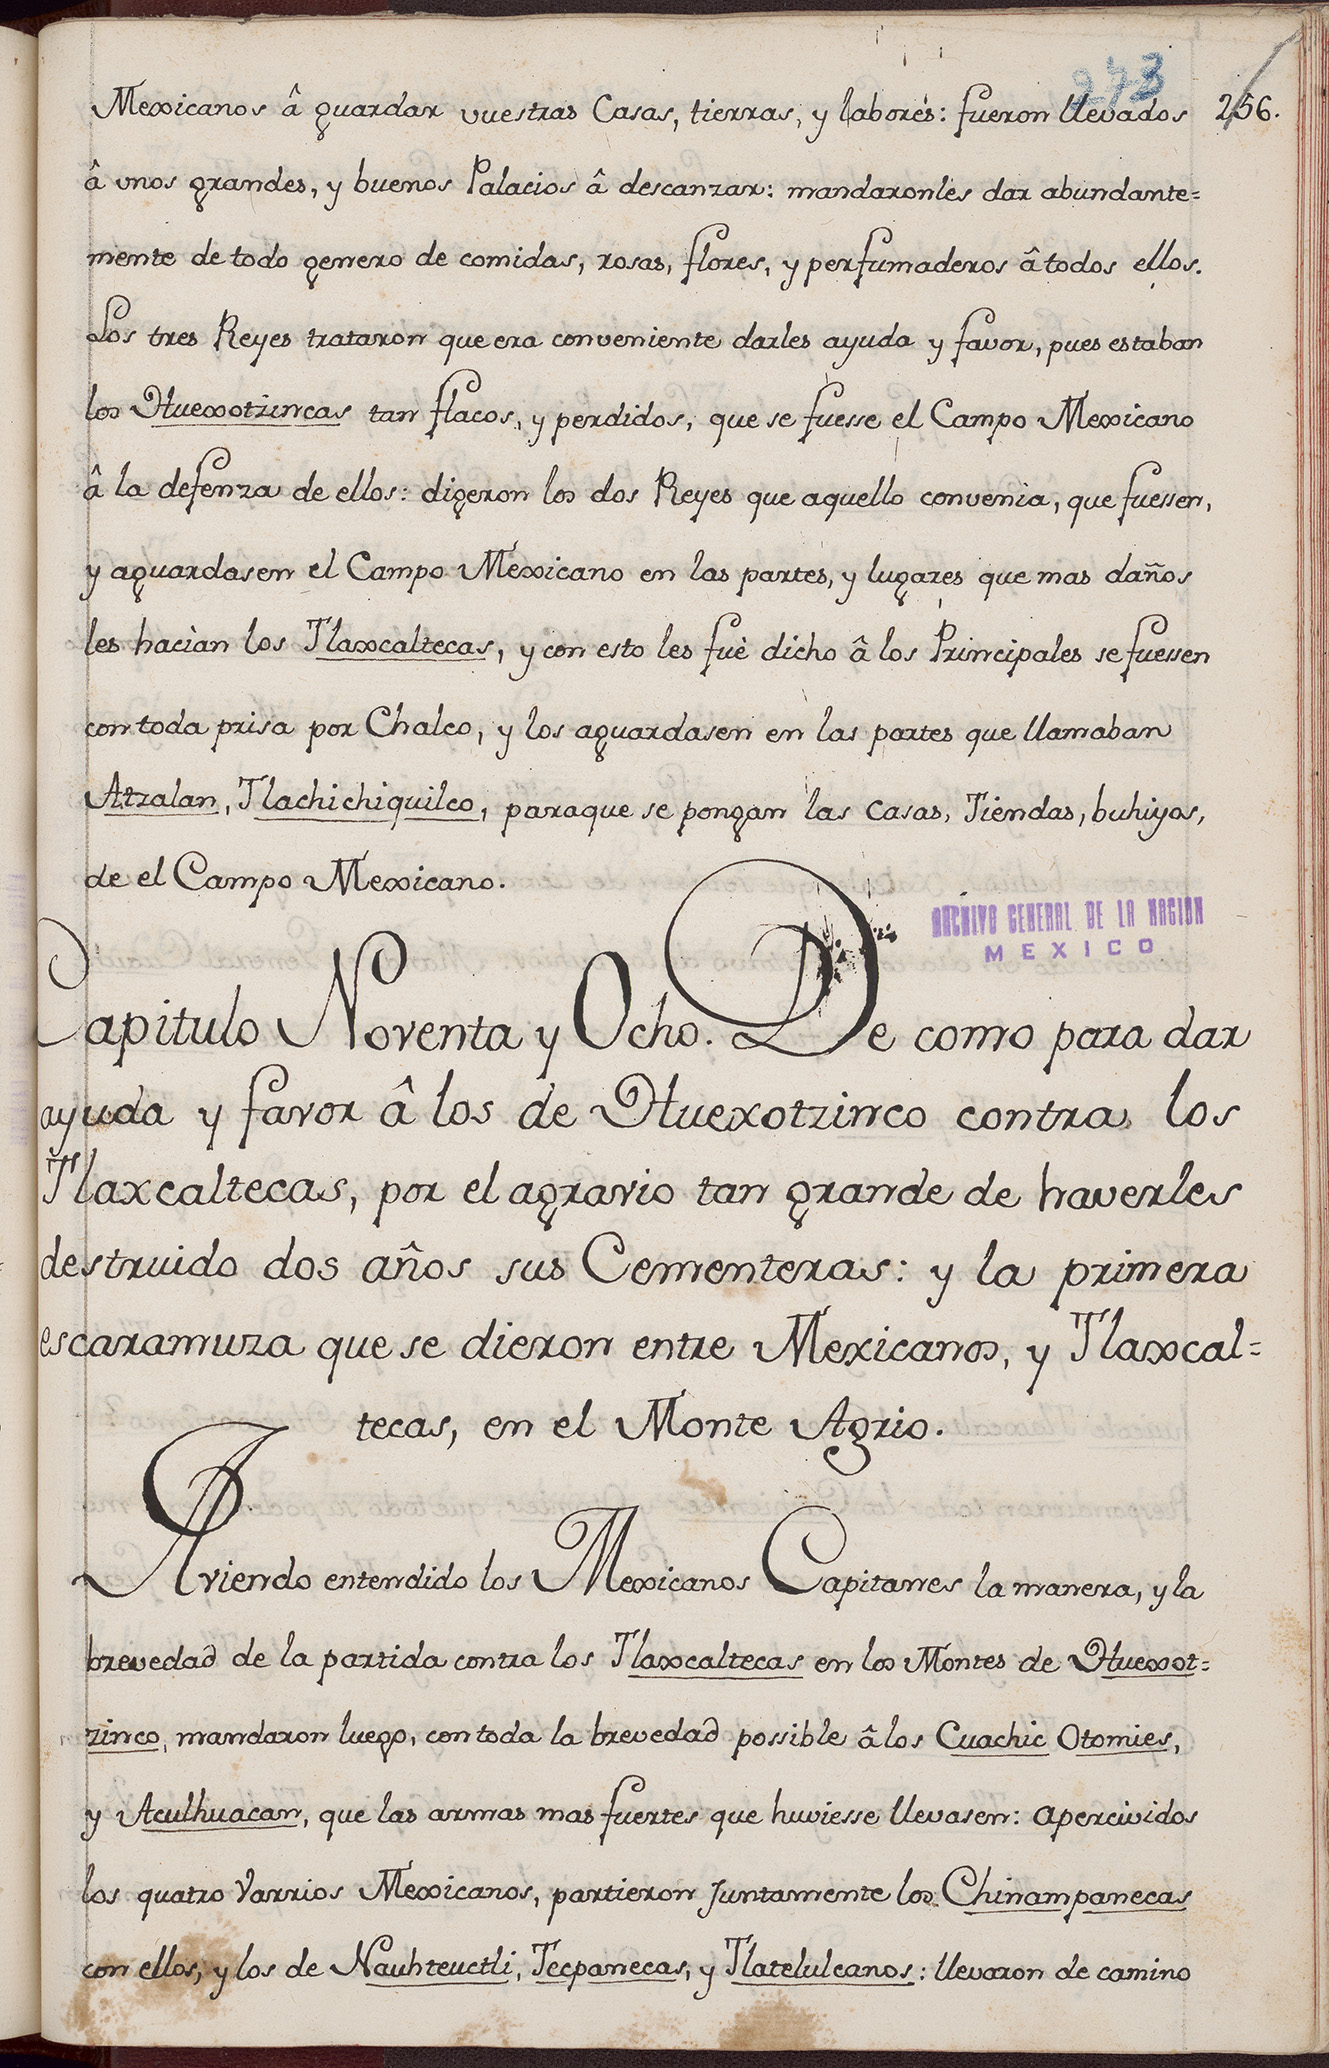 273
Mexicanos â guardar vuestras Casas, tierras, y labores: fueron llevados 256.
â unos grandes, y buenos Palacios â descanzar: mandaronles dar abundante=
mente de todo genero de comidas, rosas, flores, y perfumaderos â todos ellos.
Los tres Reyes trataron que era conveniente darles ayuda y favor, pues estaban
los Huexotzincas tan flacos, y perdidos, que se fuesse el Campo Mexicano
â la defenza de ellos: digeron los dos Reyes que aquello convenia, que fuessen,
y aguardasen el Campo Mexicano en las partes, y lugares que mas daños
les hacian los Tlaxcaltecas, y con esto les fuè dicho â los Principales se fuessen
con toda prisa por Chalco, y los aguardasen en las partes que llamaban
Atzalan, Tlachichiquilco, paraque se pongan las Casas, Tiendas, buhiyos,
de el Campo Mexicano.
ARCHIVO GENERAL DE LA NACION
MEXICO
Capitulo Noventa y Ocho. De como para dar
ayuda y favor â los de Huexotzinco contra los
Tlaxcaltecas, por el agravio tan grande de haverles
destruido dos años sus Cementeras: y la primera
escaramuza que se dieron entre Mexicanos, y Tlaxcal=
tecas, en el Monte Agrio.
Aviendo entendido los Mexicanos Capitanes la manera, y la
brevedad de la partida contra los Tlaxcaltecas en los Montes de Huexot=
zinco, mandaron luego, con toda la brevedad possible â los Cuachic Otomies,
y Aculhuacan, que las armas mas fuertes que huviesse llevasen: apercividos
los quatro Varrios Mexicanos, partieron Juntamente los Chinampanecas
con ellos, y los de Nauhteuctli, Tecpanecas, y Tlatelulcanos: llevaron de camino